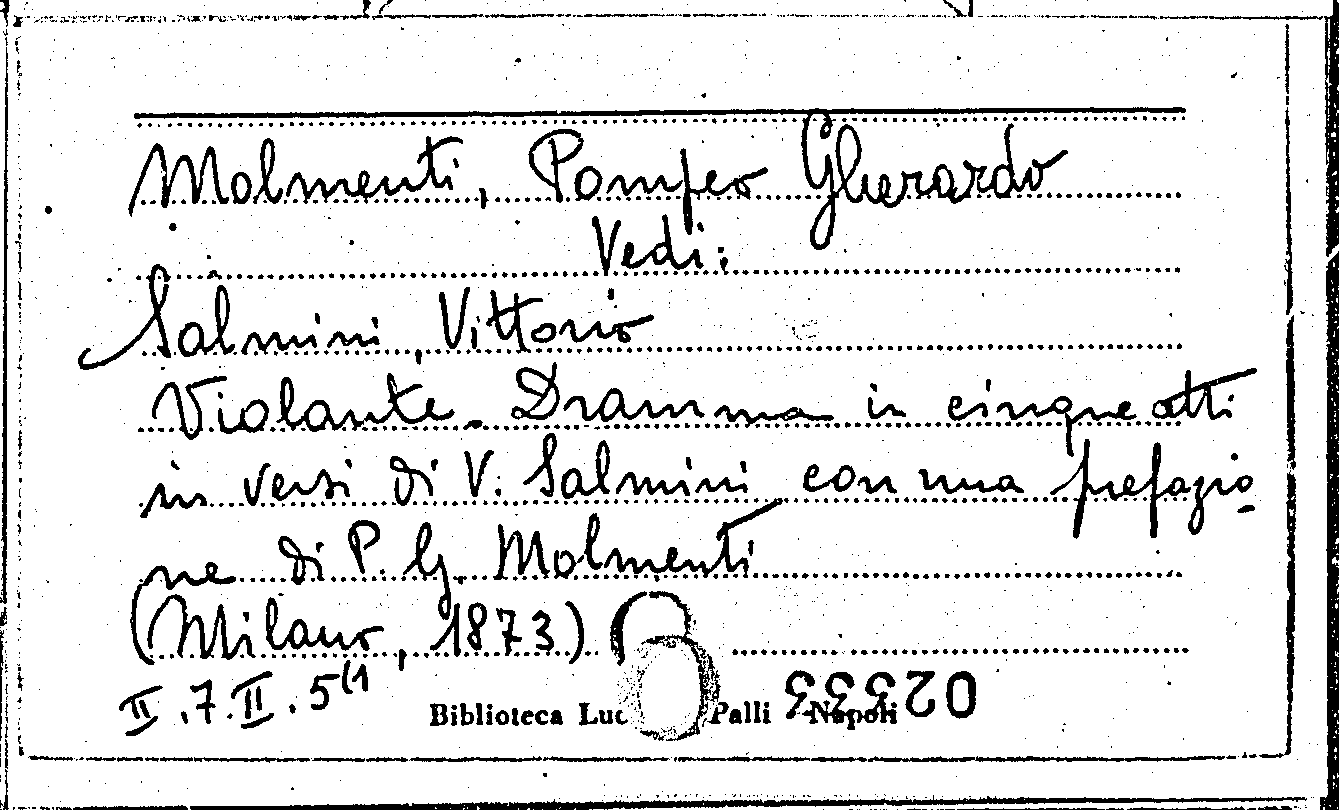 Molmenti, Pompeo Gherardo
Vedi:
Salmini, Vittorio
Violante. Dramma in cinque atti
in versi di V. Salmini con una prefazio-
ne di P. G. Molmenti
(Milano, 1873)
II.7.II.5(1
Biblioteca Luc Palli Napoli